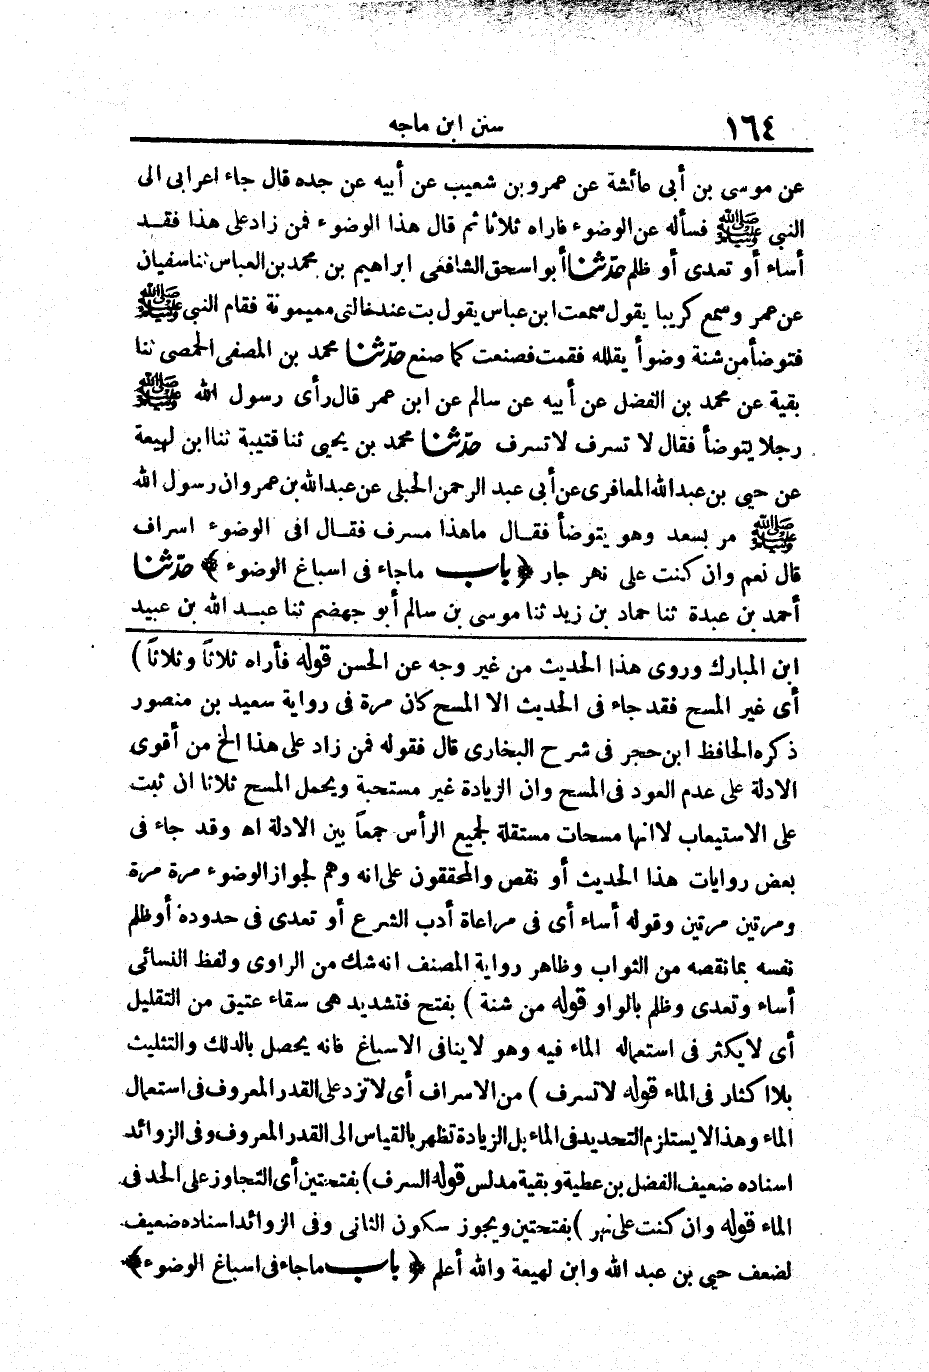 ١٦٤
سنن ابن ماجه
عن موسى بن أبى عائشة عن عمرو بن شعيب عن أبيه عن جده قال جاء اعرابى الى
النبى ﷺ فسأله عن الوضوء فاراه ثلاثا ثم قال هذا الوضوء فمن زاد على هذا فقد
أساء أو تعدى أو ظلم حدّثنا أبو اسحق الشافعى ابراهيم بن محمد بن العباس ثنا سفيان
عن عمر وسمع كريبا يقول سمعت ابن عباس يقول بت عند خالتى ميمونة فقام النبى ﷺ
فتوضأ من شنة وضوأ يقلله فقمت فصنعت كما صنع حدّثنا محمد بن المصفى الحمصى ثنا
بقية عن محمد بن الفضل عن أبيه عن سالم عن ابن عمر قال رأى رسول الله ﷺ
رجلا يتوضأ فقال لا تسرف لا تسرف حدّثنا محمد بن يحيى ثنا قتيبة ثنا ابن لهيعة
عن حيى بن عبد الله المعافرى عن أبى عبد الرحمن الحبلى عن عبد الله بن عمر وان رسول الله
ﷺ مر بسعد وهو يتوضأ فقال ماهذا مسرف فقال افى الوضوء اسراف
قال نعم وان كنت على نهر جار ﴿ باب ماجاء فى اسباغ الوضوء ﴾ حدّثنا
أحمد بن عبدة ثنا حماد بن زيد ثنا موسى بن سالم أبو جهضم ثنا عبد الله بن عبيد
ابن المبارك وروى هذا الحديث من غير وجه عن الحسن قوله فأراه ثلاثاً وثلاثاً )
أى غير المسح فقد جاء فى الحديث الا المسح كان مرة فى رواية سعيد بن منصور
ذكره الحافظ ابن حجر فى شرح البخارى قال فقوله فمن زاد على هذا الخ من أقوى
الادلة على عدم العود فى المسح وان الزيادة غير مستحبة ويحمل المسح ثلاثا ان ثبت
على الاستيعاب لا انها مسحات مستقلة لجميع الرأس جمعاً بين الادلة اه وقد جاء فى
بعض روايات هذا الحديث أو نقص والمحققون على انه وهم لجواز الوضوء مرة مرة
ومرتين مرتين وقوله أساء أى فى مراعاة أدب الشرع أو تعدى فى حدوده أو ظلم
نفسه بما نقصه من الثواب وظاهر رواية المصنف انه شك من الراوى ولفظ النسائى
أساء وتعدى وظلم بالواو قوله من شنة ) بفتح فتشديد هى سقاء عتيق من التقليل
أى لا يكثر فى استعماله الماء فيه وهو لا ينافى الاسباغ فانه يحصل بالدلك والتثليث
بلا اكثار فى الماء قوله لا تسرف ) من الاسراف أى لا تزد على القدر المعروف فى استعمال
الماء وهذا لا يستلزم التحديد فى الماء بل الزيادة تظهر بالقياس الى القدر المعروف وفى الزوائد
اسناده ضعيف الفضل بن عطية وبقية مدلس قوله السرف ) بفتحتين أى التجاوز على الحد فى
الماء قوله وان كنت على نهر ) بفتحتين ويجوز سكون الثانى وفى الزوائد اسناده ضعيف
لضعف حيى بن عبد الله وابن لهيعة والله أعلم ﴿ باب ماجاء فى اسباغ الوضوء ﴾